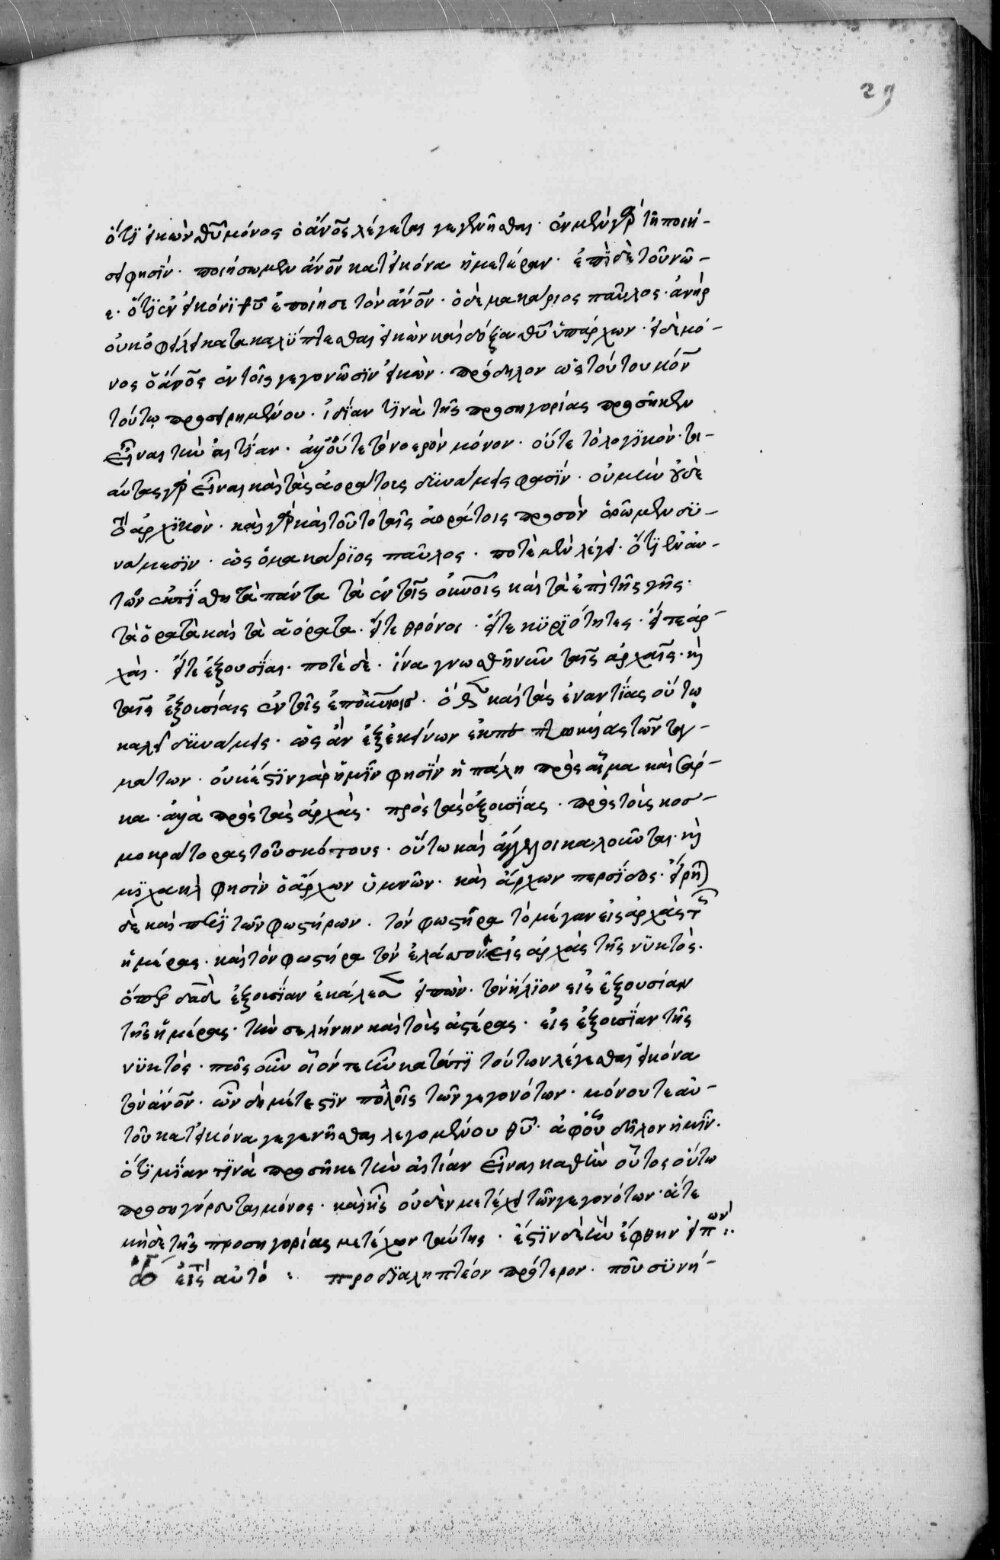 29
ὅτι εἰκὼν θῦ μόνος ὁ ἄνος λέγεται γεγενῆσθαι· ἐν μὲν γὰρ τῆ ποιή-
σει φησΐν· ποιήσωμεν ἄνον κατ εἰκόνα ἡμετέραν· ἐπῒ δὲ τοῦ νῶ-
ε· ὅτι ἐν εἰκόνϊ θῦ ἐποίησε τὸν ἄνον· ὁ δὲ μακάριος παῦλος· ἀνὴρ
οὐκ ὀφείλει κατακαλύπτεσθαι εἰκὼν καὶ δόξα θῦ ὑπάρχων· εἰ δὲ μό-
νος ὁ ἄνος ἐν τοῖς γεγονῶσϊν εἰκὼν· πρόδηλον ὡς τούτου κἂν
τούτω προσειρημένου· ἰδίαν τϊνὰ τῆς προσηγορίας προσῆκεν
εἶναι τὴν αἰτΐαν· ἀλλ οὔτε τὸ νοερὸν μόνον· οὔτε τὸ λογϊκὸν· τοι-
αύτας γὰρ εἶναι καὶ τὰς ἀοράτους δυνάμεις φασΐν· οὐ μὴν οὐδὲ
τὸ ἀρχϊκὸν· καὶ γὰρ καὶ τοῦτο ταῖς ἀοράτοις προσὸν ὁρῶμεν δϋ-
νάμεσϊν· ὡς ὁ μακάρϊος παῦλος· ποτὲ μὲν λέγει· ὅτϊ ἐν αὐ-
τῶ ἐκτΐσθη τὰ πάντα τὰ ἐν τοῖς οὐνοῖς καὶ τὰ ἐπὶ τῆς γῆς·
τὰ ὁρατὰ καὶ τὰ ἀόρατα· εἴτε θρόνοι· εἴτε κϋρϊότητες· εἴτε ἀρ-
χαὶ· εἴτε ἐξουσΐαι· ποτὲ δὲ· ἵνα γνωσθῆ νῦν ταῖς ἀρχαῖς· κὶ
ταῖς ἐξουσίαις ἐν τοῖς ἐπουρανίοις· καὶ τὰς ἐναντΐας οὕτω
καλεῖ δϋνάμεις· ὡς ἂν ἐξ ἐκείνων ταγ-
μάτων· οὐκ ἔστϊν γὰρ ἡμῖν φησΐν ἡ πάλη πρὸς αἷμα καὶ σάρ-
κα· ἀλλὰ πρὸς τὰς ἀρχὰς· πρὸς τὰς ἐξουσΐας· πρὸς τοὺς κοσ-
μοκράτορας τοῦ σκότους· οὕτω καὶ ἄγγελοι καλοῦνται· κὶ
μϊχαὴλ φησΐν ὁ ἄρχων ὑμῶν· καὶ ἄρχων περσΐδος· εἴρηται
δὲ καὶ περὶ τῶν φωστήρων· τὸν φωστῆρα τὸ μέγαν εἰς ἀρχὰς τῆς
ἡμέρας· καὶ τὸν φωστῆρα τὸν ἐλάττονα εἰς ἀρχὰς τῆς νϋκτὸς·
ὅπερ δαδ ἐξουσΐαν ἐκάλεσεν εἰπὼν· τὸν ἥλϊον εἰς ἐξουσίαν
τῆς ἡμέρας· τὴν σελήνην καὶ τοὺς ἀστέρας· εἰς ἐξουσΐαν τῆς
νϋκτὸς· πῶς οὖν οἷόν τε ἦν κατά τι τούτων λέγεσθαι εἰκόνα
τὸν ἄνον· ὧν δὴ μέτεστϊν πολλοῖς τῶν γεγονότων· μόνου τε αὐ-
τοῦ κατ εἰκόνα γεγενῆσθαι λεγομένου θῦ· ἀφ οὗ δῆλον ἡμῖν·
ὅτϊ μΐαν τϊνὰ προσῆκε τὴν αἰτΐαν εἶναι καθ ἣν οὗτος οὕτω
προσηγόρευται μόνος· καὶ ἧς οὐδὲν μετέχει τῶν γεγονότων· ἅτε
μηδὲ τῆς προσηγορίας μετέχον ταύτης· ἔστϊν δὲ ἣν ἔφθην εἰπών·
εἰς αὐτό : προδϊαληπτέον πρότερον· ποῦ σϋνή-